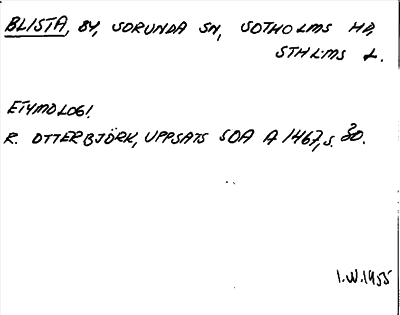 BLISTA, BY, SORUNDA SN, SOTHOLMS HD,
STHLMS L.
ETYMOLOGI.
R. OTTERBJÖRK, UPPSATS SOA A 1467, S. 30.
I.W. 1955